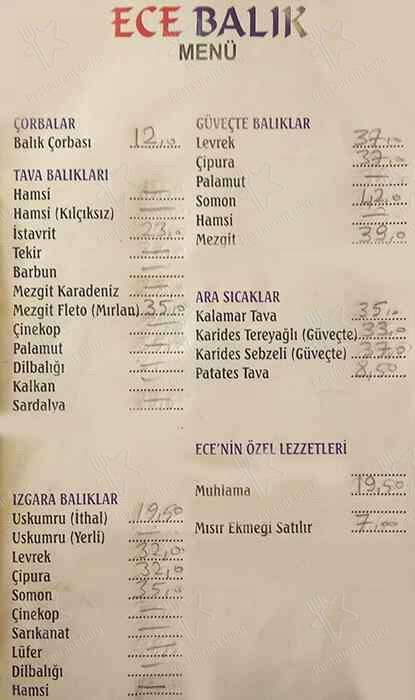 ECE BALIK
MENÜ
ÇORBALAR
Balık Çorbası 12,0
TAVA BALIKLARI
Hamsi —
Hamsi (Kılçıksız) —
İstavrit 23,0
Tekir —
Barbun —
Mezgit Karadeniz —
Mezgit Fleto (Mırlan) 35,0
Çinekop —
Palamut —
Dilbalığı —
Kalkan —
Sardalya —
IZGARA BALIKLAR
Uskumru (İthal) 19,50
Uskumru (Yerli) —
Levrek 32,0
Çipura 32,0
Somon 35,0
Çinekop —
Sarıkanat —
Lüfer —
Dilbalığı —
Hamsi —
GÜVEÇTE BALIKLAR
Levrek 37,0
Çipura 37,0
Palamut —
Somon 42,0
Hamsi —
Mezgit 39,0
ARA SICAKLAR
Kalamar Tava 35,0
Karides Tereyağlı (Güveçte) 33,0
Karides Sebzeli (Güveçte) 37,0
Patates Tava 8,50
ECE'NİN ÖZEL LEZZETLERİ
Muhlama 19,50
Mısır Ekmeği Satılır 7,00